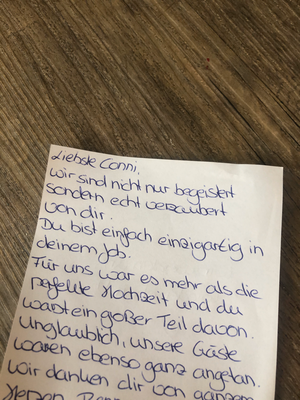 Liebste Conni,
wir sind nicht nur begeistert
sondern echt verzaubert
von dir.
Du bist einfach einzigartig in
deinem Job.
Für uns war es mehr als die
perfekte Hochzeit und du
warst ein großer Teil davon.
Unglaublich, unsere Gäste
waren ebenso ganz angetan.
Wir danken dir von ganzem
Herzen